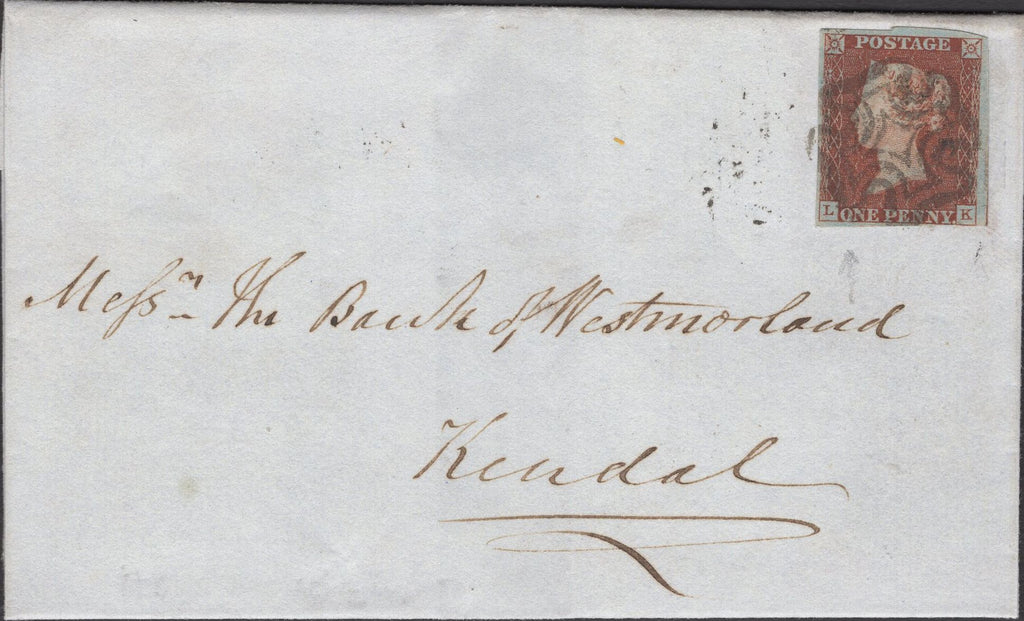 POSTAGE
L ONE PENNY. K
Messrs. The Bank of Westmorland
Kendal